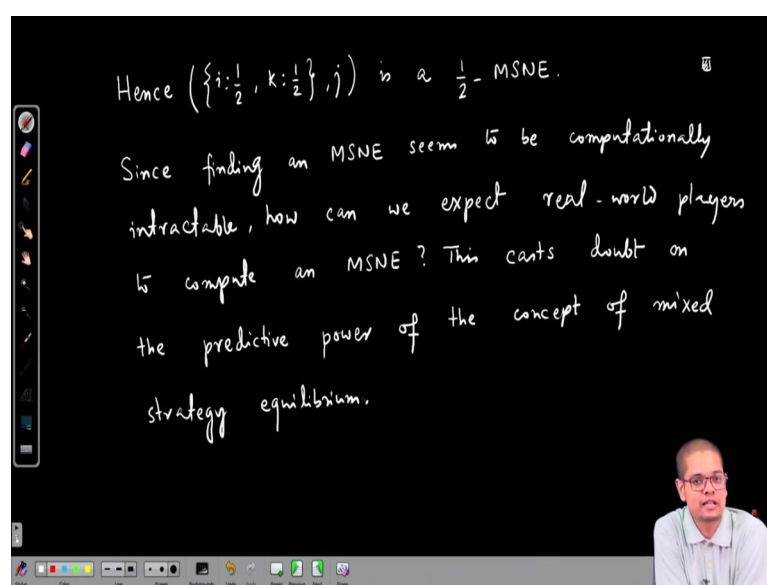 Hence ({i:1/2, k:1/2}, j) is a 1/2-MSNE.
Since finding an MSNE seem to be computationally
intractable, how can we expect real-world players
to compute an MSNE? This casts doubt on
the predictive power of the concept of mixed
strategy equilibrium.